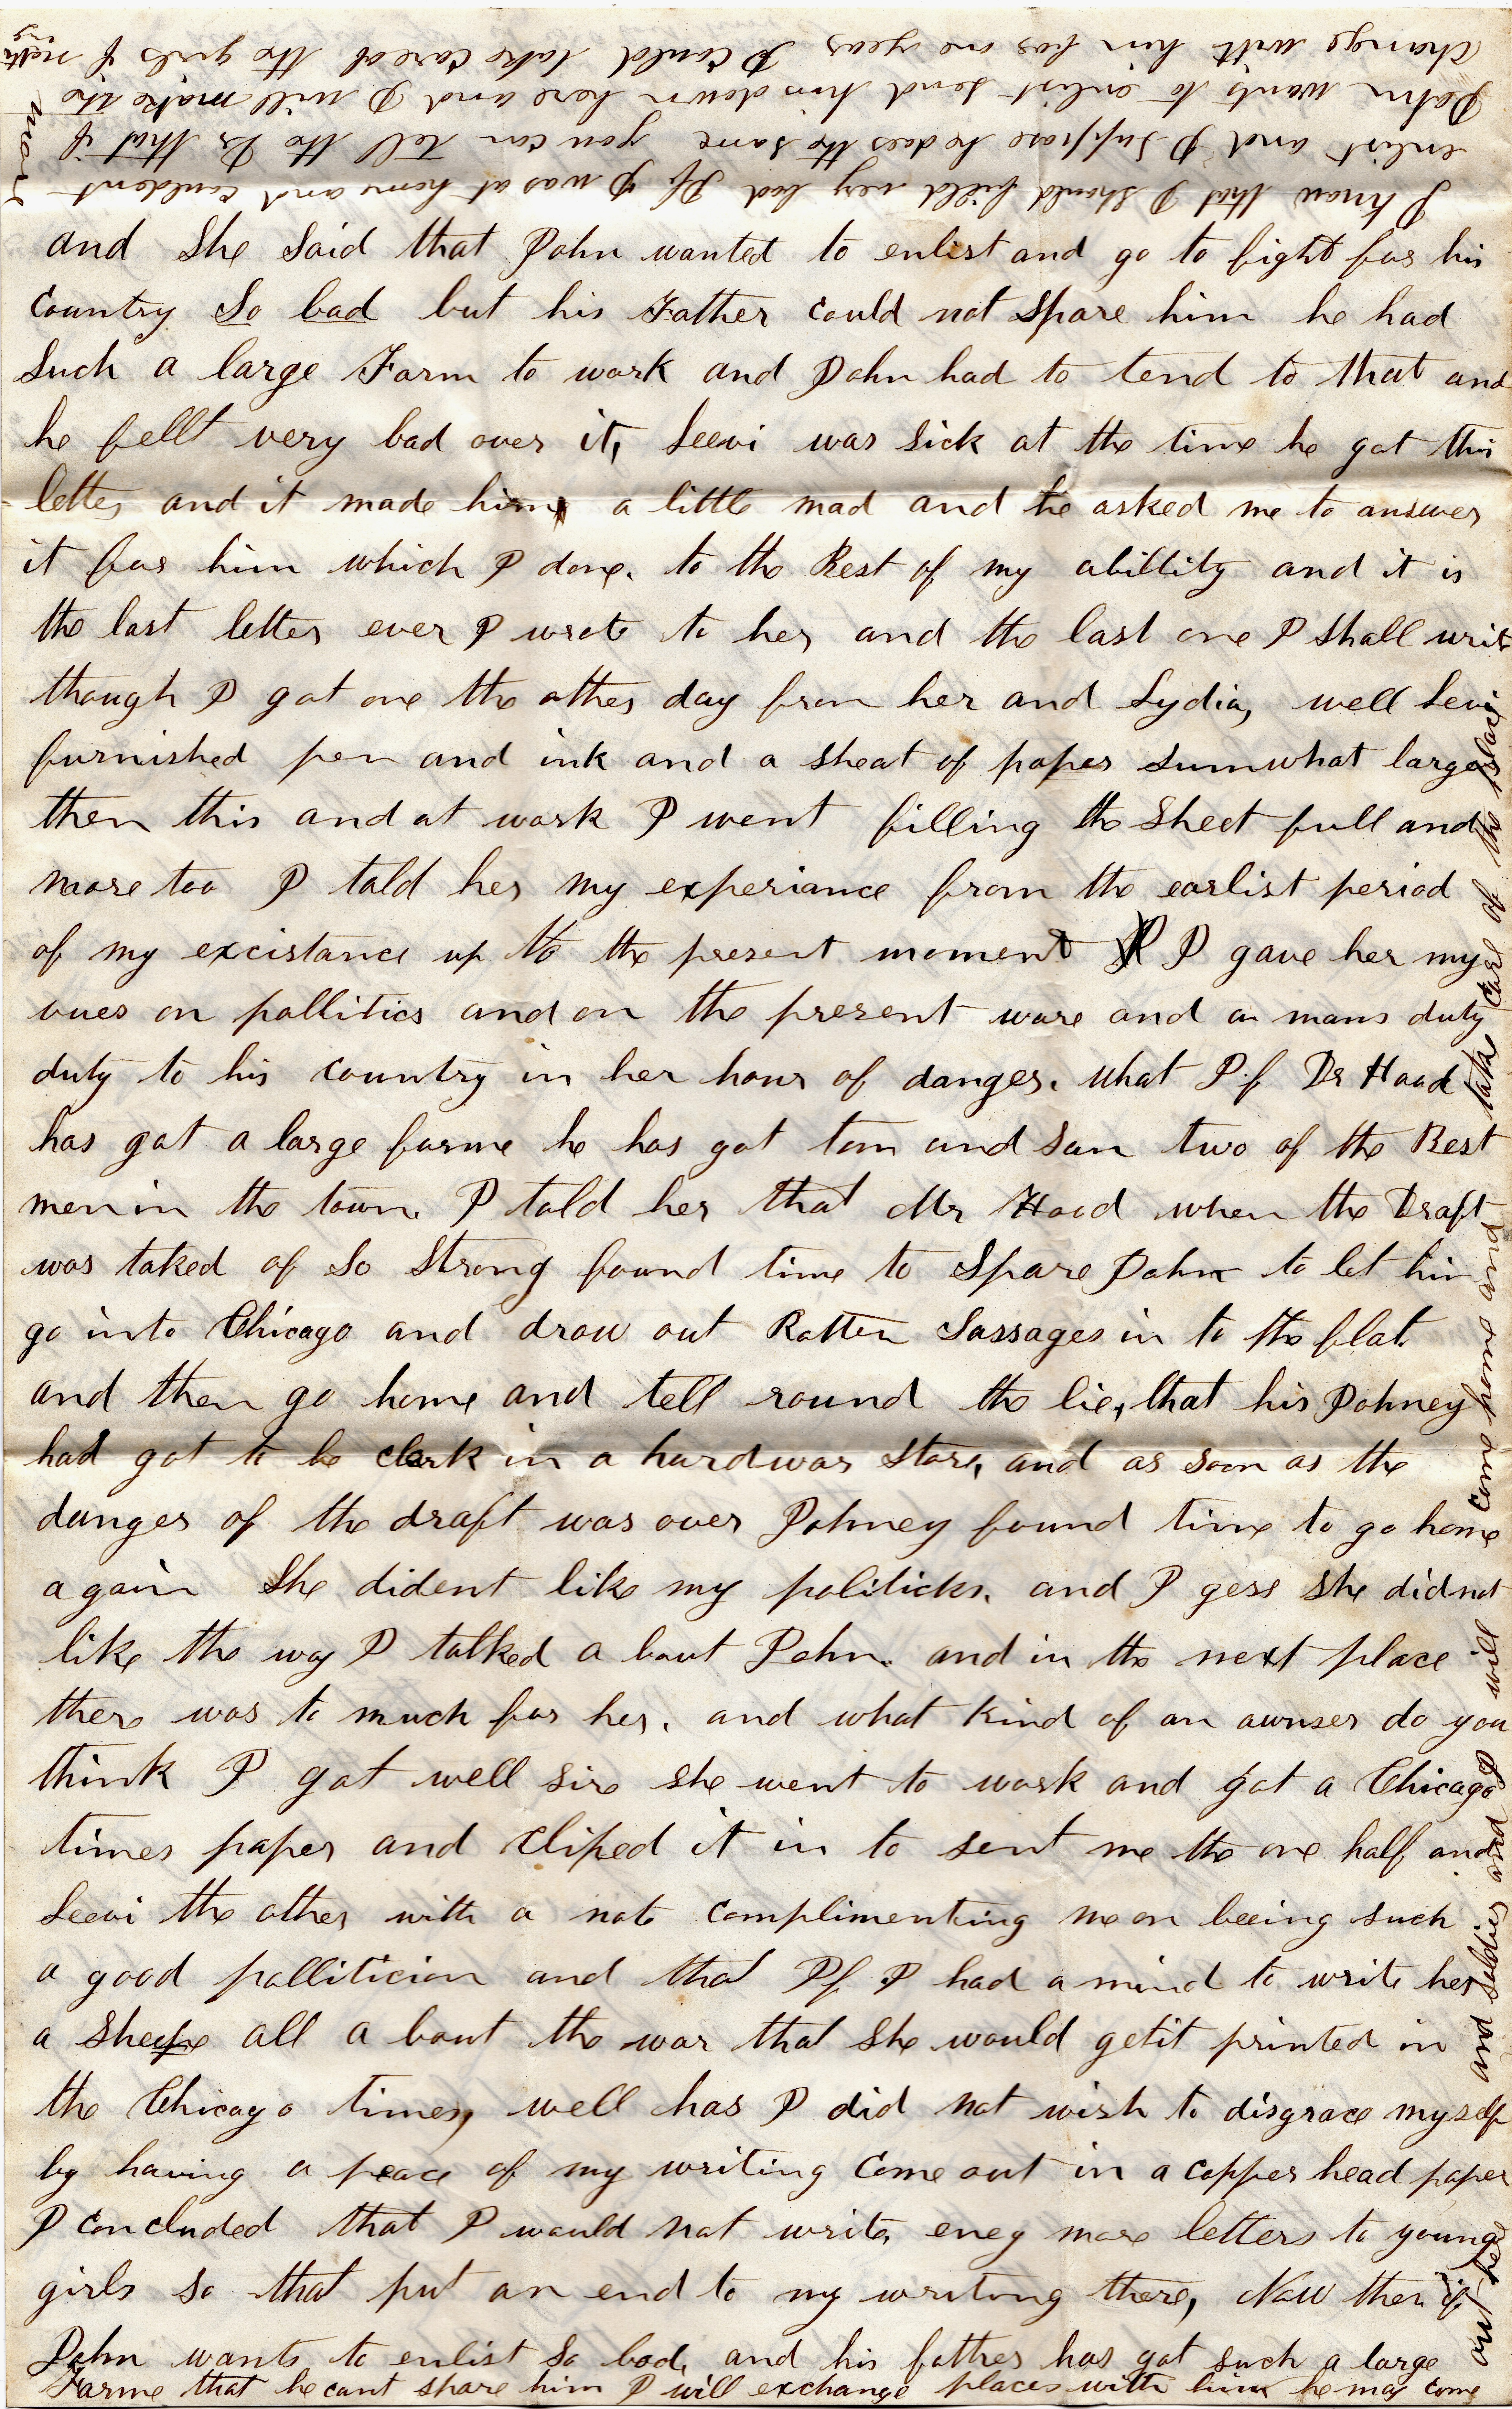 and She Said that John wanted to enlist and go to fight for his
Country So bad but his Father Could not Spare him he had
Such a large Farm to work and John had to tend to that and
he fellt very bad over it, Leevi was sick at the time he got this
letter and it made him a little mad and he asked me to answer
it for him which I done. to the Best of my abillity and it is
the last letter ever I wrote to her and the last one I shall writ
though I got one the other day from her and Lydia, well Levi
furnished pen and ink and a sheat of paper sumwhat larger
then this and at work I went filling the Sheet full and
more too I told her my experiance from the earlist period
of my excistance up to the present moment I gave her my
vues on pollitics and on the present ware and on mans duty
duty to his Country in her hour of danger. what If Dr Hood
has got a large farme he has got tom and Sam two of the Best
men in the town. I told her that Mr Hood when the Draft
was taked of So Strong found time to Spare John to let him
go into Chicago and drow out Rotten Sassages in to the flat.
and then go home and tell round the lie, that his Johney
had got to be clerk in a hardwar store, and as soon as the
danger of the draft was over Johney found time to go home
again She dident like my politicks. and I gess she did not
like the way I talked a bout John. and in the next place
there was to much for her. and what kind of an awnser do you
think I got well sir she went to work and got a Chicago
times paper and cliped it in to sent me the one half and
Leevi the other with a note complimenting me on beeing such
a good polliticion and that If I had a mind to write her
a all a bout the war that she would get it printed in
the Chicago times, well has I did not wish to disgrace myself
by having a peace of my writing Come out in a copper head paper
I concluded that I would not write eney more letters to young
girls so that put an end to my writing there, Now then if
John wants to enlist so bad, and his father has got such a large
Farme that he cant spare him I will exchange places with him he may come
out here and soldier and I will come home and take care of the place
I know that I should fell very bad If I was at home and couldent
enlist and I suppose he does the same you can tell the Dr that if
John wants to enlist send him down here and I will make the
change with him for one year I could take care of the girls if nothing
more